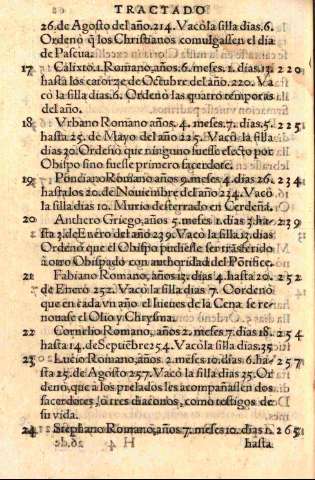 TRACTADO
26. de Agosto del año. 214. Vacò la silla dias. 6.
Ordenò q̃ los Christianos comulgassen el dia
de Pascua.
17 Calixto. 1. Romano, años. 6. meses. 1. dias. 13. 220
hasta los catorze de Octubre del año. 220. Va
cò la silla dias. 6. Ordenò las quatro tẽporas
del año.
18 Vrbano Romano años. 4. meses. 7. dias. 5. 225
hasta 25. de Mayo del año 225. Vacò la silla
dias 30. Ordenò que ninguno fuesse electo por
Obispo sino fuesse primero sacerdote.
19 Põciano Romano años 9. meses 4. dias 26. 234
hasta los 20. de Nouiembre del año 234. Vacò
la silla dias 10. Murio desterrado en Cerdeña.
20 Anthero Griego, años 5. meses 1. dias 3. ha- 239
sta 3. de Enero del año 239. Vacò la silla 13. dias
Ordenò que el Obispo pudiesse ser trãsferido
à otro Obispado con authoridad del Põtifice.
21 Fabiano Romano, años 13. dias 4. hasta 20. 252
de Enero 252. Vacò la silla dias 7. Cordenò
que en cada vn año el Iueues de la Cena se re-
nouasse el Olio y Chrysma.
22 Cornelio Romano, años 2. meses 7. dias 18. 254
hasta 14. de Septiẽbre 254. Vacò la silla dias. 25
23 Lucio Romano, años 2. meses 10. dias 6. ha- 257
sta 25. de Agosto 257. Vacò la silla dias 25. Or
denò, que à los prelados les acompañassen dos
sacerdotes, ò tres diaconos, como testigos de
su vida.
24 Stephano Romano, años 7. meses 10. dias 1. 265
H 4 hasta